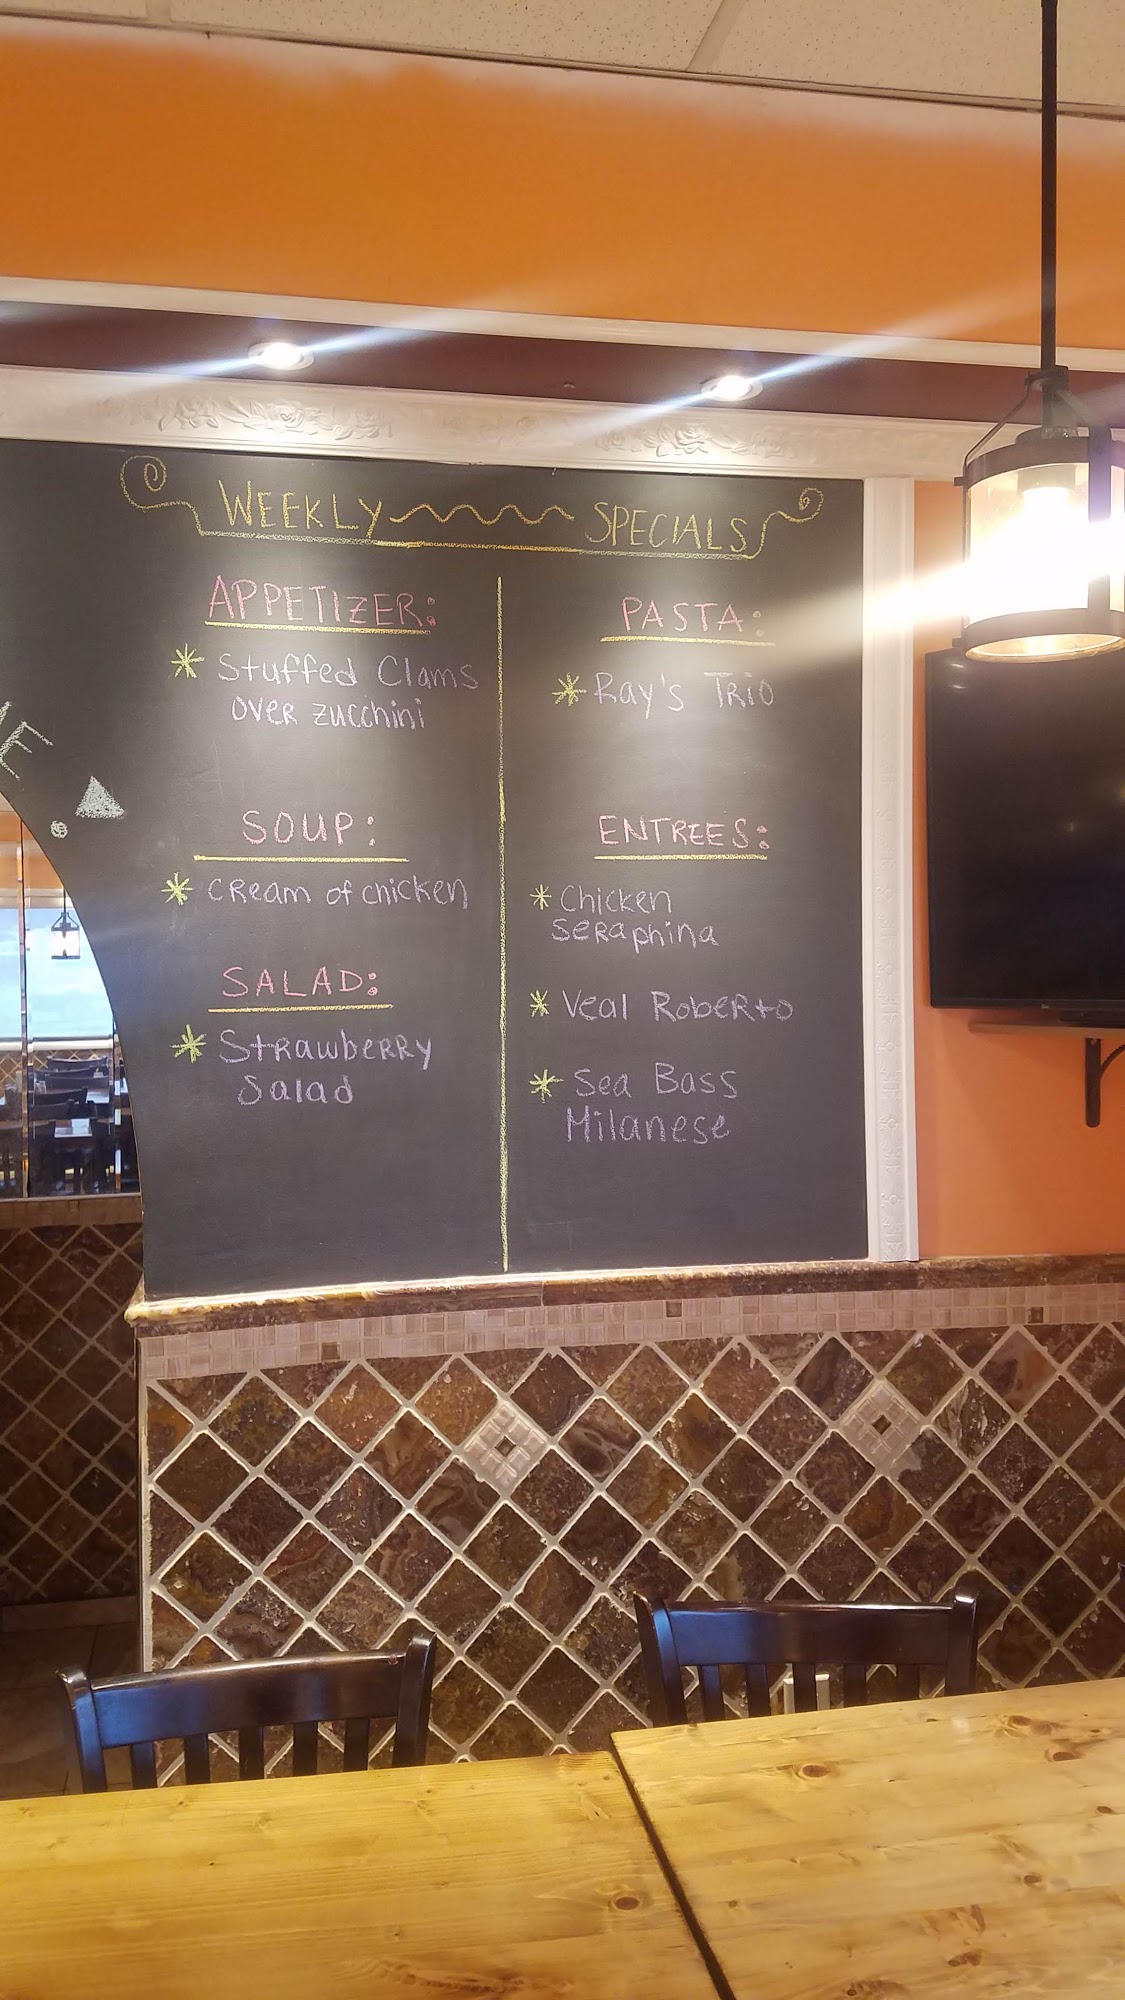 WEEKLY SPECIALS
APPETIZER:
* Stuffed Clams
over zucchini
SOUP:
* Cream of chicken
SALAD:
* Strawberry
Salad
PASTA:
* Ray's Trio
ENTREES:
* Chicken
Seraphina
* Veal Roberto
* Sea Bass
Milanese